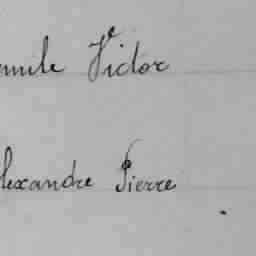 emile Victor
lexandre Pierre